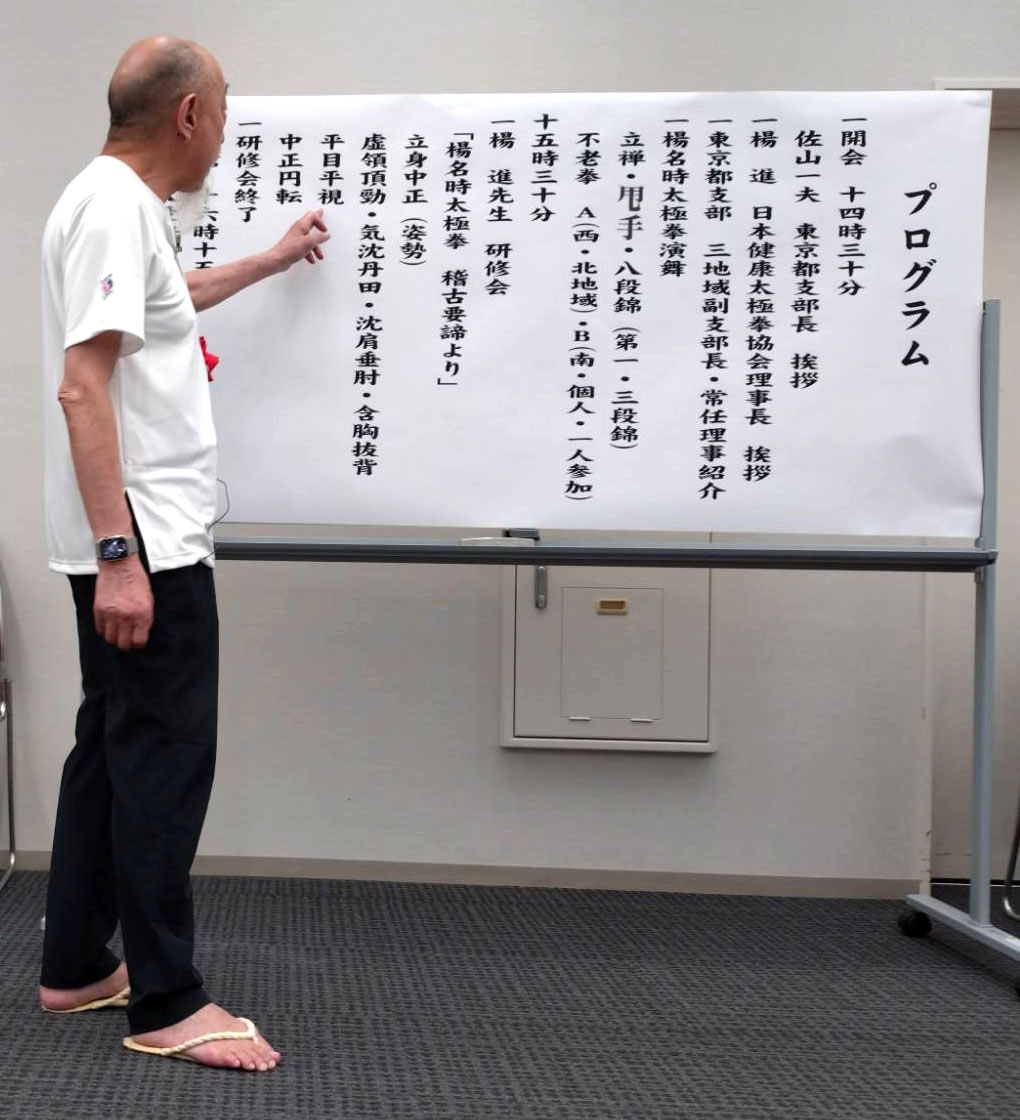 プログラム
一開会　十四時三十分
佐山一夫　東京都支部長　挨拶
一楊　進　日本健康太極拳協会理事長　挨拶
一東京都支部　三地域副支部長・常任理事紹介
一楊名時太極拳演舞
立禅・甩手・八段錦（第一・三段錦）
不老拳　A（西・北地域）・B（南・個人・一人参加）
十五時三十分
一楊　進先生　研修会
「楊名時太極拳　稽古要諦より」
立身中正（姿勢）
虚領頂勁・気沈丹田・沈肩垂肘・含胸抜背
平目平視
中正円転
一研修会終了
六時十五